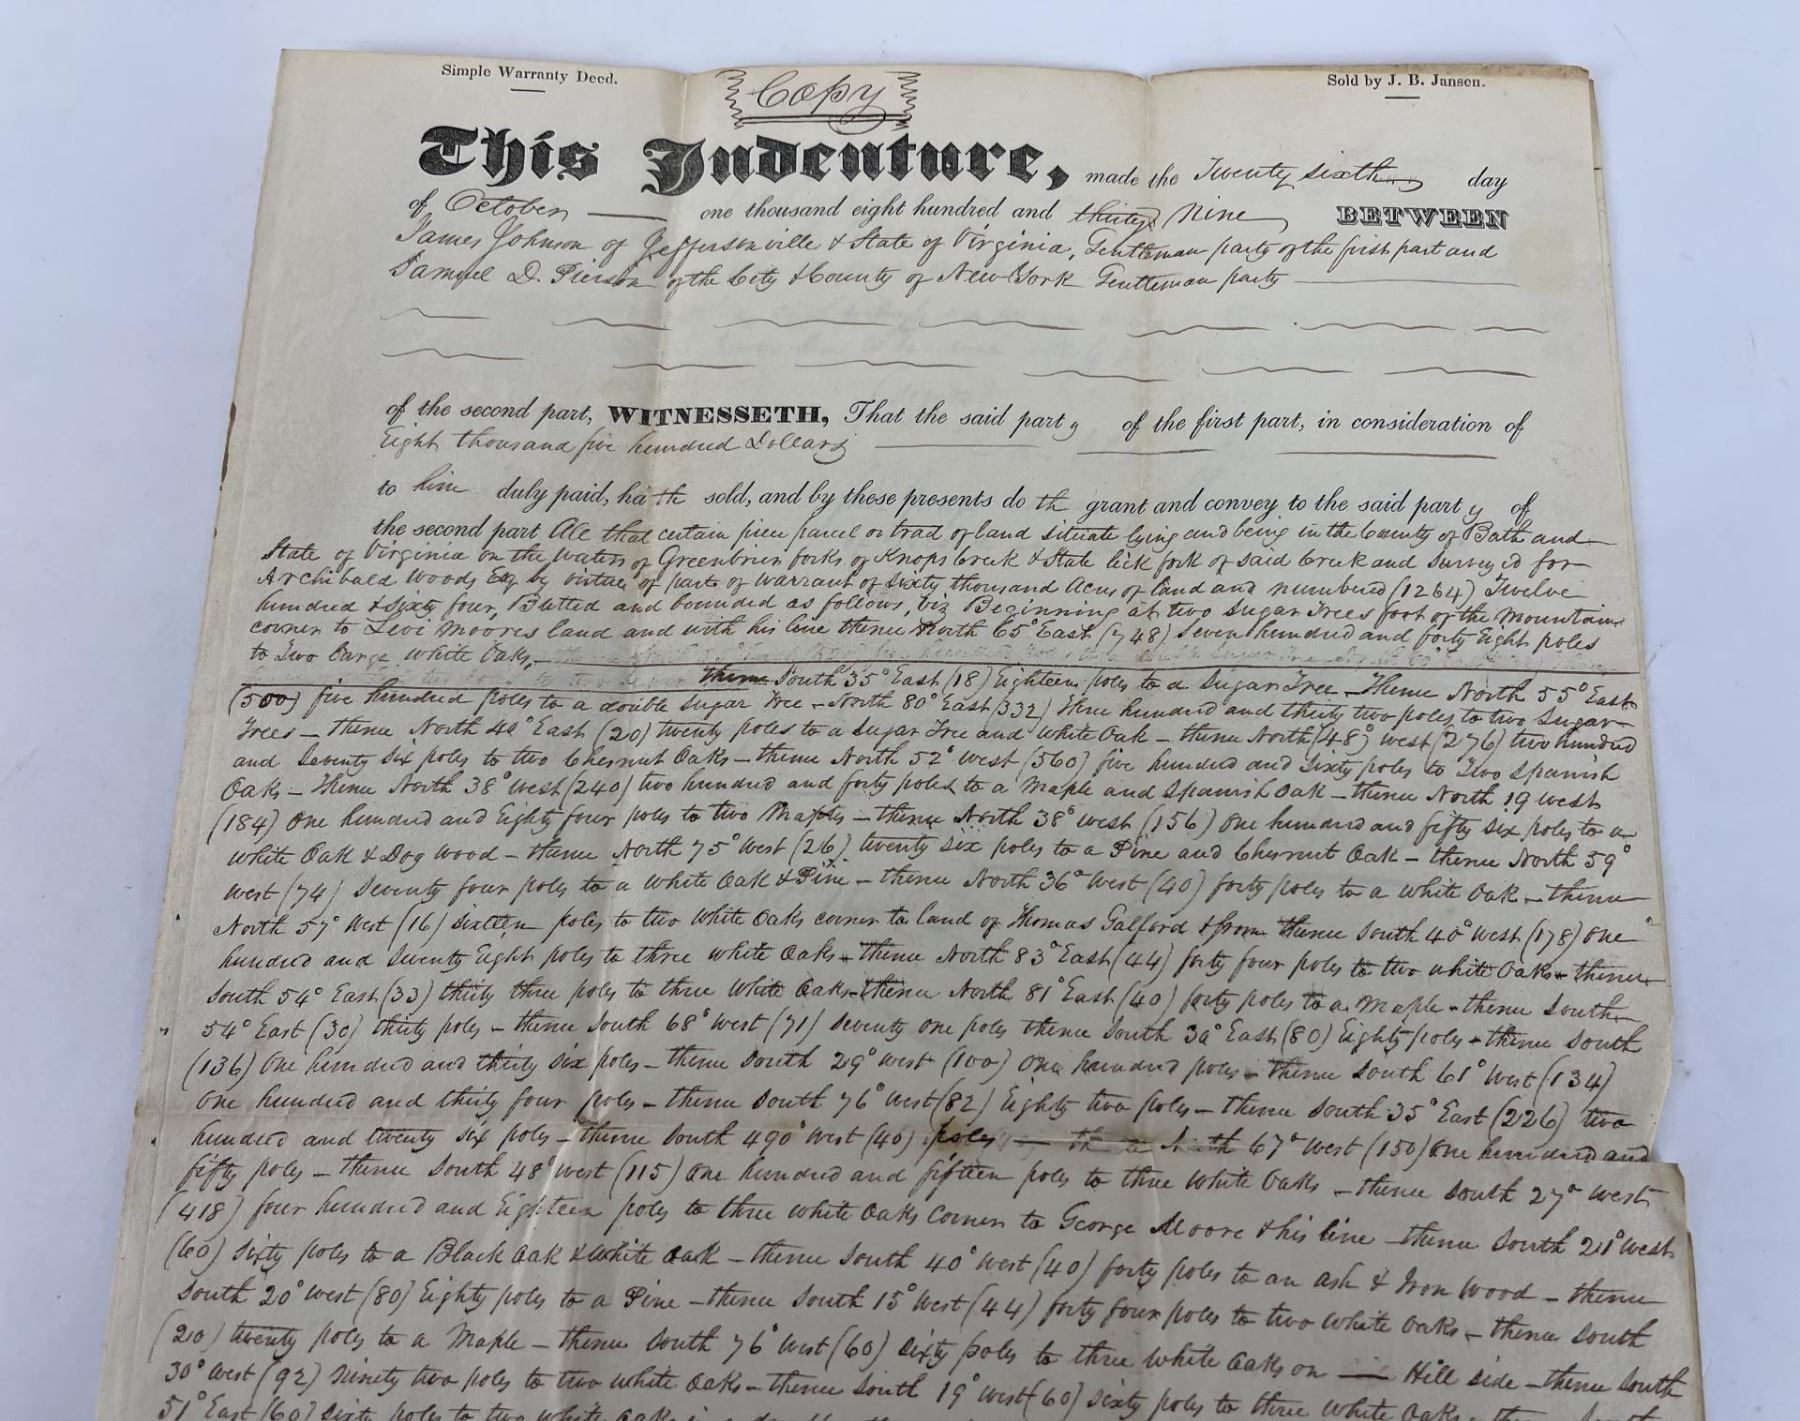 Simple Warranty Deed.
Copy
Sold by J. B. Jansen.
This Indenture, made the Twenty sixth day
of October one thousand eight hundred and thirty Nine BETWEEN
James Johnson of Jeffersonville & State of Virginia, Gentleman party of the first part and
Samuel D. Pierson of the City & County of New York Gentleman party
of the second part, WITNESSETH, That the said party of the first part, in consideration of
Eight thousand five hundred Dollars
to him duly paid, hath sold, and by these presents doth grant and convey to the said party of
the second part All that certain piece parcel or trad of land situate lying and being in the County of Bath and
State of Virginia on the waters of Greenbrier forks of Knops Creek & State lick fork of said Creek and Survey'd for
Archibald Woods Esq by virtue of part of warrant of sixty thousand Acres of land and numbered (1264) Twelve
hundred & sixty four, Butted and bounded as follows, viz Beginning at two Sugar Trees foot of the Mountain
corner to Levi Moores land and with his line thence North 65° East (748) Seven hundred and forty Eight poles
to Two Large White Oaks,
thence South 35° East (18) Eighteen poles to a Sugar Tree - Thence North 55° East
(500) five hundred poles to a double Sugar Tree - North 80° East (332) three hundred and thirty two poles to two Sugar
Trees - thence North 40° East (20) twenty poles to a Sugar Tree and White Oak - thence North (48)° west (276) two hundred
and Seventy six poles to two Chesnut Oaks - thence North 52° west (560) five hundred and sixty poles to Two Spanish
Oaks - Thence North 38° west (240) two hundred and forty poles to a Maple and Spanish Oak - thence North 19 west
(184) One hundred and Eighty four poles to two Maples - thence North 38° west (156) one hundred and fifty six poles to a
white Oak & Dog wood - thence North 75° West (26) twenty six poles to a Pine and Chesnut Oak - thence North 59°
west (74) Seventy four poles to a white Oak & Pine - thence North 36° West (40) forty poles to a white Oak - thence
North 57° West (16) sixteen poles to two white Oaks corner to land of Thomas Galford & from thence South 40° west (178) one
hundred and Seventy Eight poles to three white Oaks - thence North 83° East (44) forty four poles to two white Oaks - thence
South 54° East (33) thirty three poles to three White Oaks - thence North 81° East (40) forty poles to a Maple - thence South
54° East (30) thirty poles - thence South 68° West (71) Seventy one poles thence South 30° East (80) Eighty poles - thence South
(136) One hundred and thirty six poles - thence South 29° west (100) One hundred poles - thence South 61° West (134)
One hundred and thirty four poles - thence South 76° west (82) Eighty two poles - thence South 35° East (226) two
hundred and twenty six poles - thence South 490° West (40) poles 67° West (150) One hundred and
fifty poles - thence South 48° West (115) One hundred and fifteen poles to three White Oaks - thence South 27° West
(418) four hundred and Eighteen poles to three white Oaks Corner to George Moore & his line - thence South 21° West
(60) Sixty poles to a Black Oak & White Oak - thence South 40° west (40) forty poles to an ash & Iron Wood - thence
South 20° west (80) Eighty poles to a Pine - thence South 15° West (44) forty four poles to two White Oaks - thence South
(20) twenty poles to a Maple - thence South 76° West (60) Sixty poles to three White Oaks on Hill side - thence South
30° West (92) Ninety two poles to two White Oaks - thence South 19° west (60) Sixty poles to three White Oaks - thence
51° East (60) Sixty poles to two White Oaks